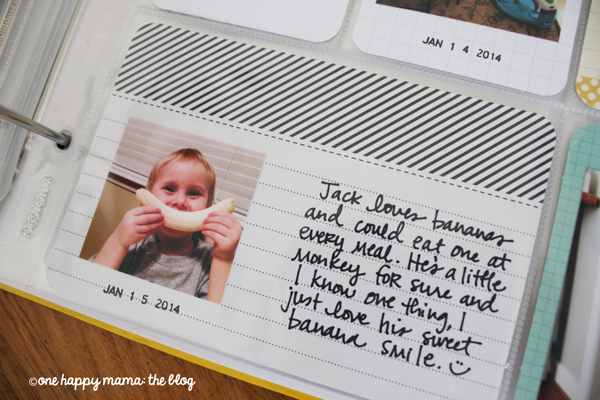 JAN 14 2014
Jack loves bananas
and could eat one at
every meal. He's a little
monkey for sure and
I know one thing, I
just love his sweet
banana smile. ☺
JAN 15 2014
©one happy mama: the blog